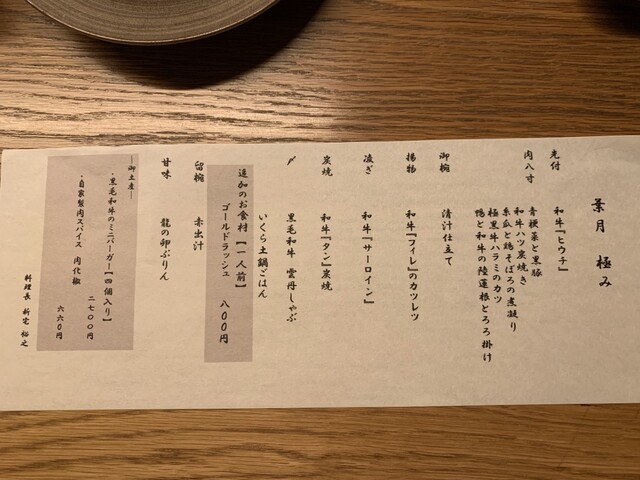 葉月　極み
先付　和牛『ヒウチ』
肉八寸　青梗菜と黒豚
和牛ハツ炭焼き
糸瓜と鶏そぼろの煮凝り
極黒牛ハラミのカツ
鴨と和牛の陸蓮根とろろ掛け
御椀　清汁仕立て
揚物　和牛『フィレ』のカツレツ
凌ぎ　和牛『サーロイン』
炭焼　和牛『タン』炭焼
〆　黒毛和牛　雲丹しゃぶ
いくら土鍋ごはん
追加のお食材【一人前】
ゴールドラッシュ　八00円
留椀　赤出汁
甘味　龍の卵ぷりん
―御土産―
・黒毛和牛のミニバーガー【四個入り】
二七00円
・自家製肉スパイス　肉化椒
六六0円
料理長　新宅　裕之